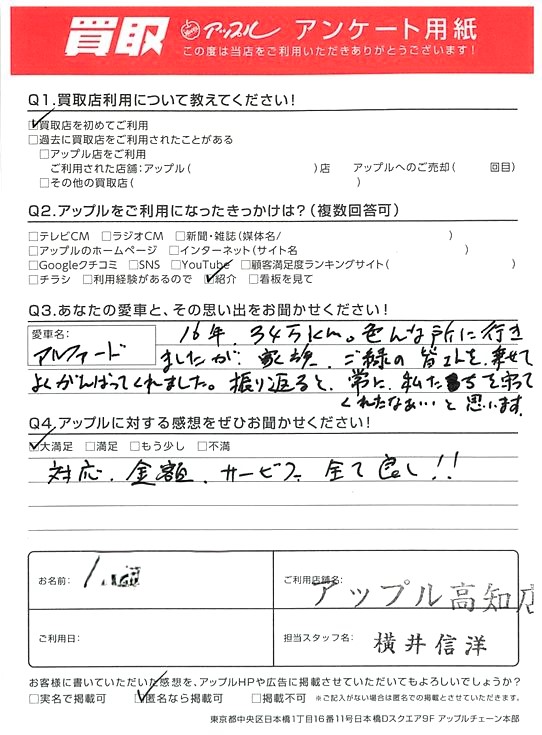 買取 アップル アンケート用紙
この度は当店をご利用いただきありがとうございます！
Q1.買取店利用について教えてください！
☑買取店を初めてご利用
□過去に買取店をご利用されたことがある
□アップル店をご利用
ご利用された店舗：アップル（ ）店 アップルへのご売却（ 回目）
□その他の買取店（ ）
Q2.アップルをご利用になったきっかけは？（複数回答可）
□テレビCM □ラジオCM □新聞・雑誌（媒体名/ ）
□アップルのホームページ □インターネット（サイト名 ）
□Googleクチコミ □SNS □YouTube □顧客満足度ランキングサイト（ ）
□チラシ □利用経験があるので ☑紹介 □看板を見て
Q3.あなたの愛車と、その思い出をお聞かせください！
愛車名： 16年、34万km。色んな所に行き
アルファード ましたが、家族、ご縁の皆さんを乗せて
よくがんばってくれました。振り返ると、常に、私たちを守って
くれたなぁ…と思います。
Q4.アップルに対する感想をぜひお聞かせください！
☑大満足 □満足 □もう少し □不満
対応、金額、サービス、全て良し!!
お名前： ご利用店舗名：
アップル高知店
ご利用日： 担当スタッフ名： 横井信洋
お客様に書いていただいた感想を、アップルHPや広告に掲載させていただいてもよろしいでしょうか？
□実名で掲載可 ☑匿名なら掲載可 □掲載不可 ※ご記入がない場合は匿名での掲載とさせていただきます。
東京都中央区日本橋1丁目16番11号日本橋Dスクエア9F アップルチェーン本部